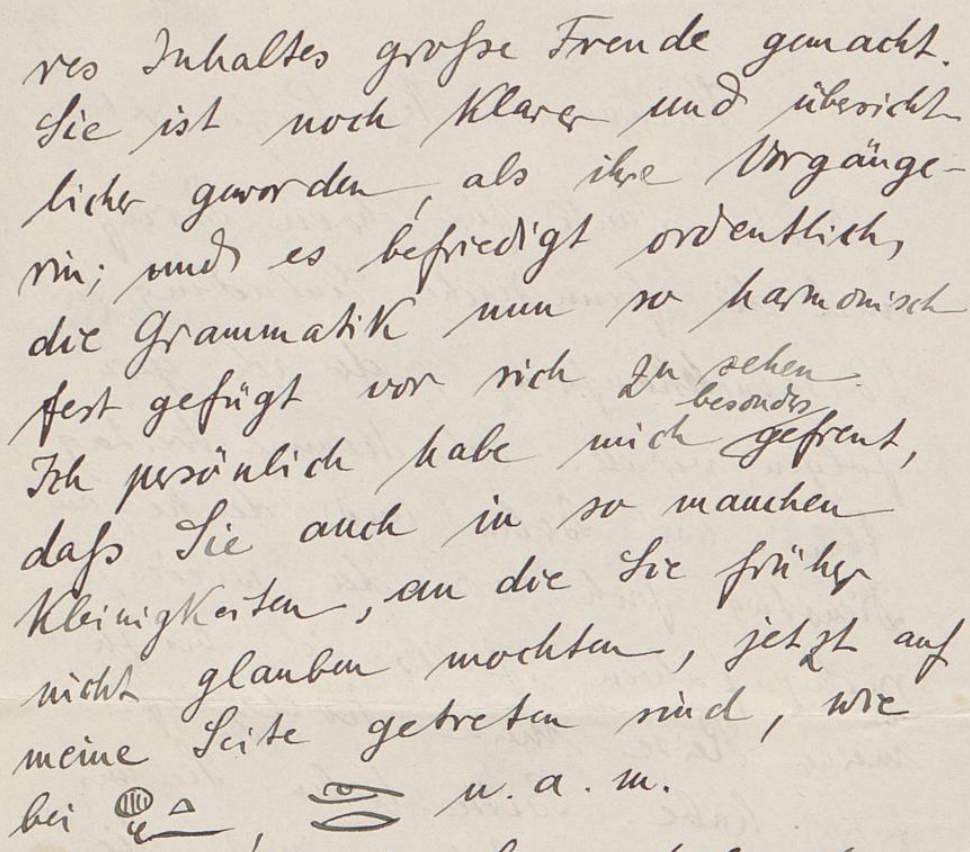 res Inhaltes große Freude gemacht.
Sie ist noch klarer und übersicht
licher geworden, als ihre Vorgänge-
rin; und es befriedigt ordentlich,
die Grammatik nun so harmonisch
fest gefügt vor sich zu sehen.
besonders
Ich persönlich habe mich gefreut,
daß Sie auch in so manchen
Kleinigkeiten, an die Sie früher
nicht glauben mochten, jetzt auf
meine Seite getreten sind, wie
bei , u. a. m.